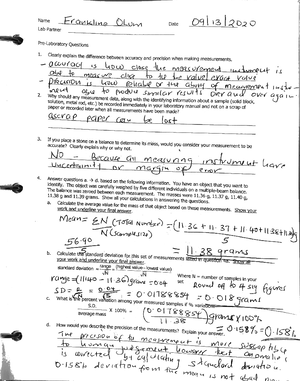 Name Franklino Olum Date: 09/13/2020
Lab Partner
Pre-Laboratory Questions
1. Clearly explain the difference between accuracy and precision when making measurements.
- accuracy is how close the measurement instrument is
able to measure to the exact value
- precision is how reliable or the ability of measurement
to produce similar results over and over again
2. Why should any measurement data, along with the identifying information about a sample (solid block,
solution, metal rod, etc.) be recorded immediately in your laboratory manual and not on a scrap of
paper or recorded later when all measurements have been made?
a scrap paper can be lost
3. If you place a stone on a balance to determine its mass, would you consider your measurement to be
accurate? Clearly explain why or why not.
NO - Because all measuring instrument have
uncertainty or margin of error
4. Answer questions a → d. based on the following information. You have an object that you want to
identify. The object was carefully weighed by five different individuals on a multiple-beam balance.
The balance was zeroed between each measurement. The masses were 11.36 g, 11.37 g, 11.40 g,
11.38 g and 11.39 grams. Show all your calculations in answering the questions.
a. Calculate the average value for the mass of that object based on these measurements. Show your
work and underline your final answer.
Mean = ΣN (Total number) / N (Sample size) = (11.36 + 11.37 + 11.40 + 11.38 + 11.39) / 5
56.90 / 5 = 11.38 grams
b. Calculate the standard deviation for this set of measurements
your work and underline your final answer.
standard deviation = range (highest value - lowest value) / √N Where N = number of samples in your set
range = (11.40 - 11.36) grams = 0.04 Round off to 4 sig figures
SD = R/√N = 0.04/√5 = 0.01788854 = 0.018 grams
c. What is the percent variation among your measured samples if % variation =
S.D. / average mass X 100% = (0.01788854 / 11.38) grams × 100%
= 0.158%
d. How would you describe the precision of the measurements? Explain your answer.
The precision to measurement is more susceptible
to human judgement however
is corrected by calculating standard deviation.
0.158% deviation from the mean is not